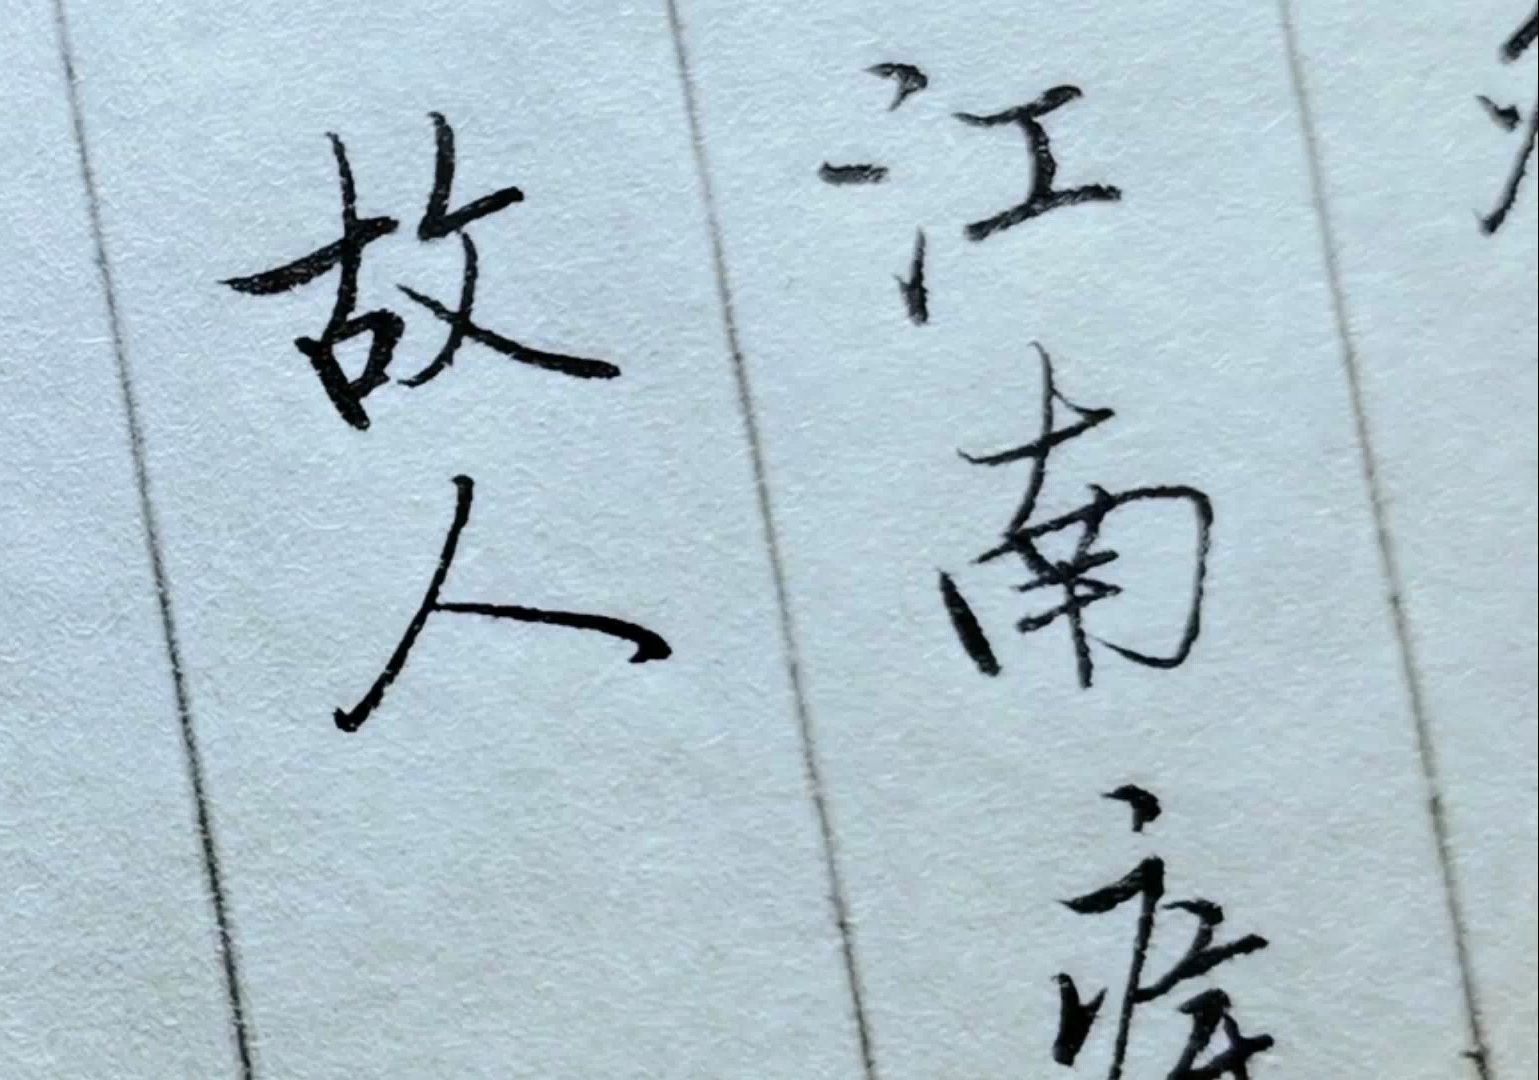 江南瘴
故人